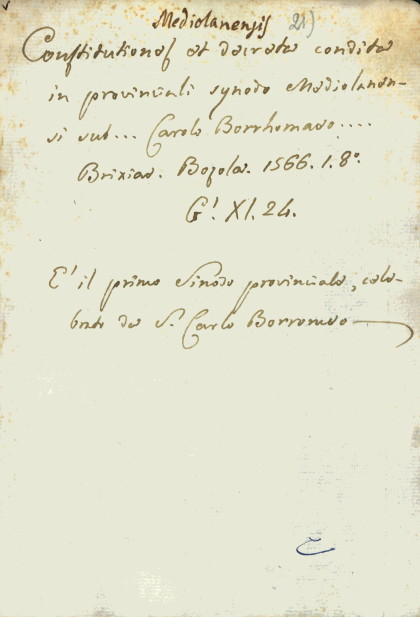 Mediolanensis 21)
Constitutiones et decreta condita
in provinciali synodo Mediolanen-
si sub... Carolo Borrhomaeo....
Brixiae. Bozola. 1566. 1. 8º.
G! XI. 24.
E' il primo Sinodo provinciale, cele-
brato da S. Carlo Borromeo